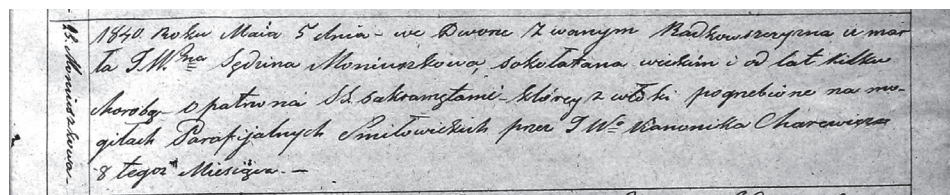 15. Moniuszkowa -
1840. Roku Maia 5 dnia - we Dworze Zwanym Radkowszczyzna umar
ła J.W.na Sędzina Moniuszkowa, skołatana wiekiem i od lat kilku
chorobą opatrzona SS. Sakramętami - którey zwłoki pogrzebione na mo-
giłach Parafijalnych Smiłowickich przez J W.o Kanonika Charewicza
8 tegoż Miesiąca. -